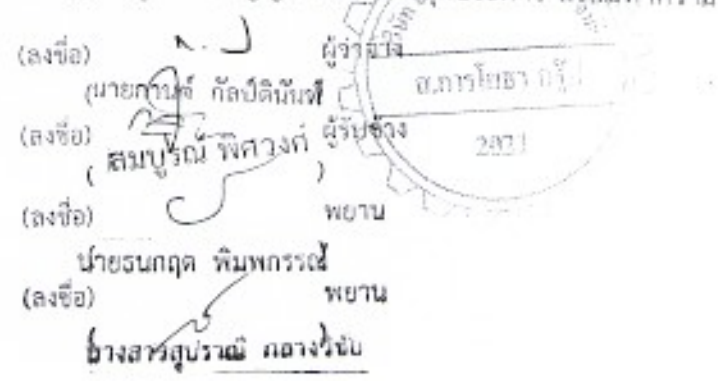 (ลงชื่อ) ผู้ว่าจ้าง
(นายกานต์ กัลป์ตินันท์
(ลงชื่อ) ผู้รับจ้าง
( สมบูรณ์ พิศวงค์ )
(ลงชื่อ) พยาน
นายธนกฤต พิมพกรรณ์
(ลงชื่อ) พยาน
นางสาวสุปราณี กลางวิชัย
ส.การโยธา
2021